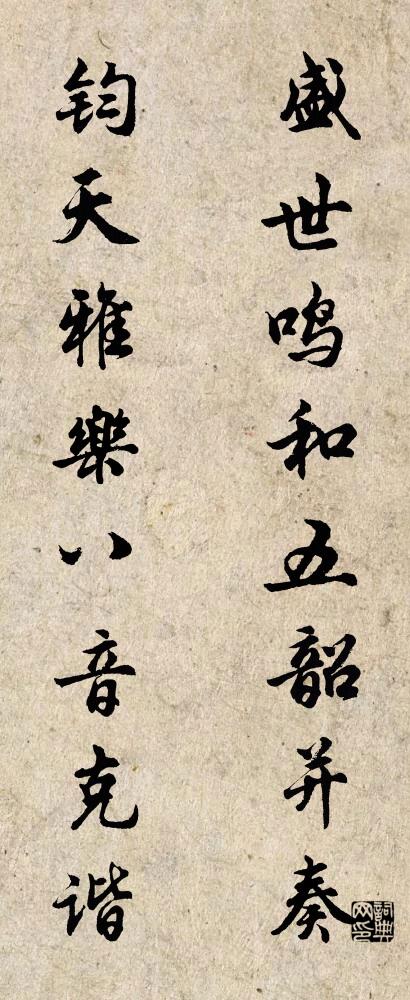 盛世鸣和五韶并奏
钧天雅樂八音克谐
詞典网印